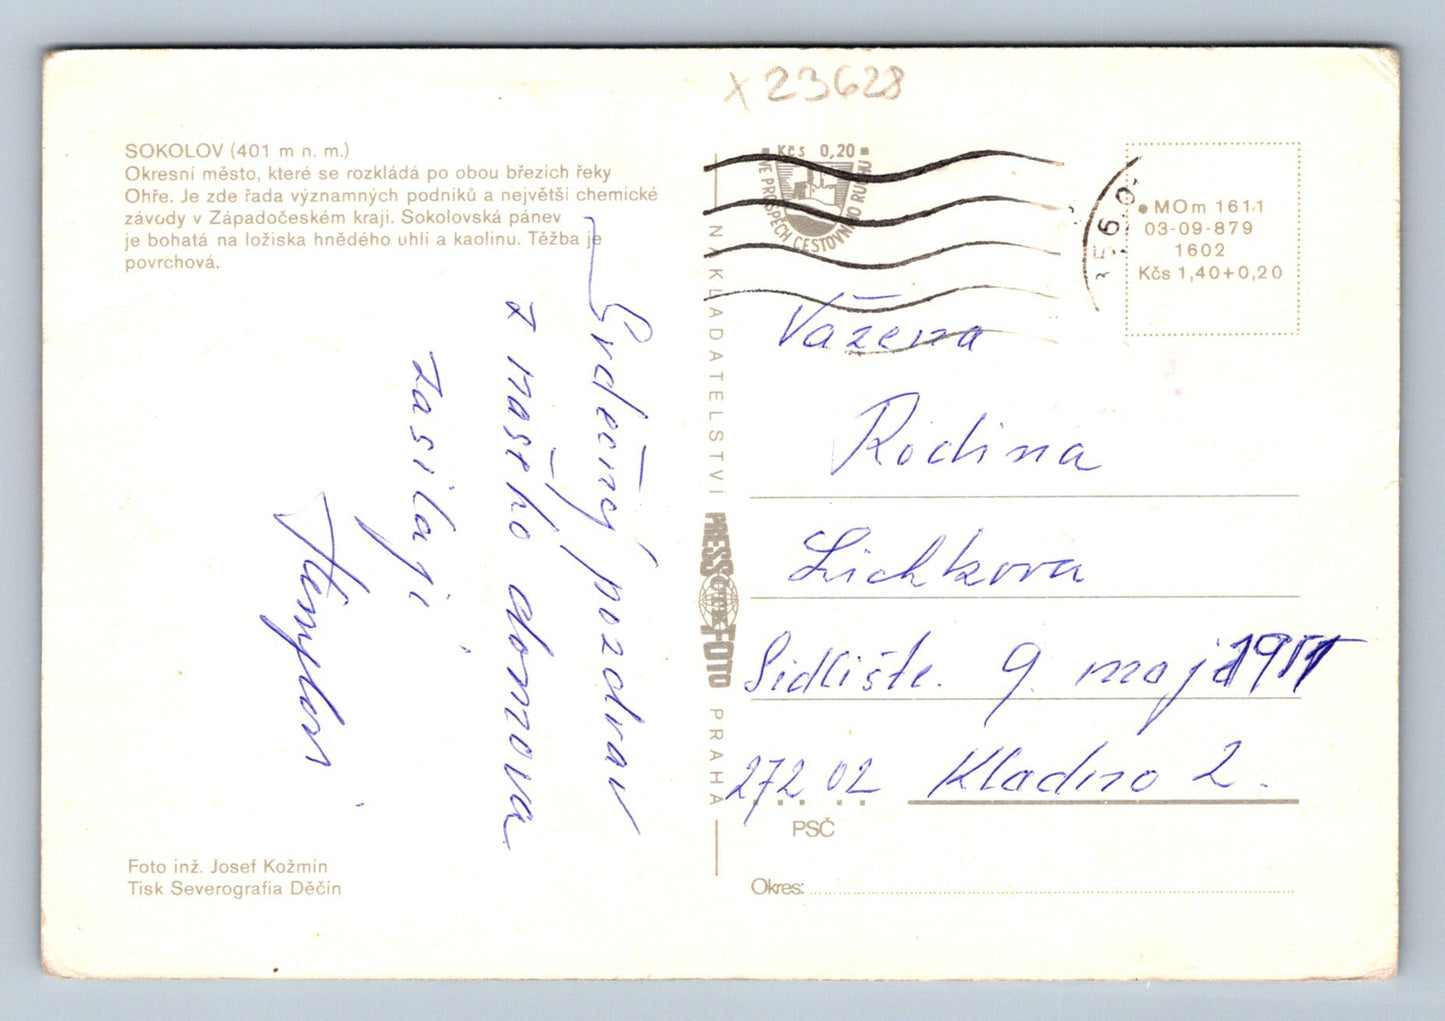 X 23628
SOKOLOV (401 m n. m.)
Okresní město, které se rozkládá po obou březích řeky
Ohře. Je zde řada významných podniků a největší chemické
závody v Západočeském kraji. Sokolovská pánev
je bohatá na ložiska hnědého uhlí a kaolinu. Těžba je
povrchová.
Srdečný pozdrav
z našeho domova
zasílají
Foto inž. Josef Kožmín
Tisk Severografia Děčín
NAKLADATELSTVÍ PRESSFOTO PRAHA
ČTK
Kčs 0,20
VE PROSPĚCH CESTOVNÍHO RUCHU
356 0
MOm 1611
03-09-879
1602
Kčs 1,40+0,20
Vážena
Rodina
Lichkova
Sidliště. 9 maja
272 02 Kladno 2.
PSČ
Okres: